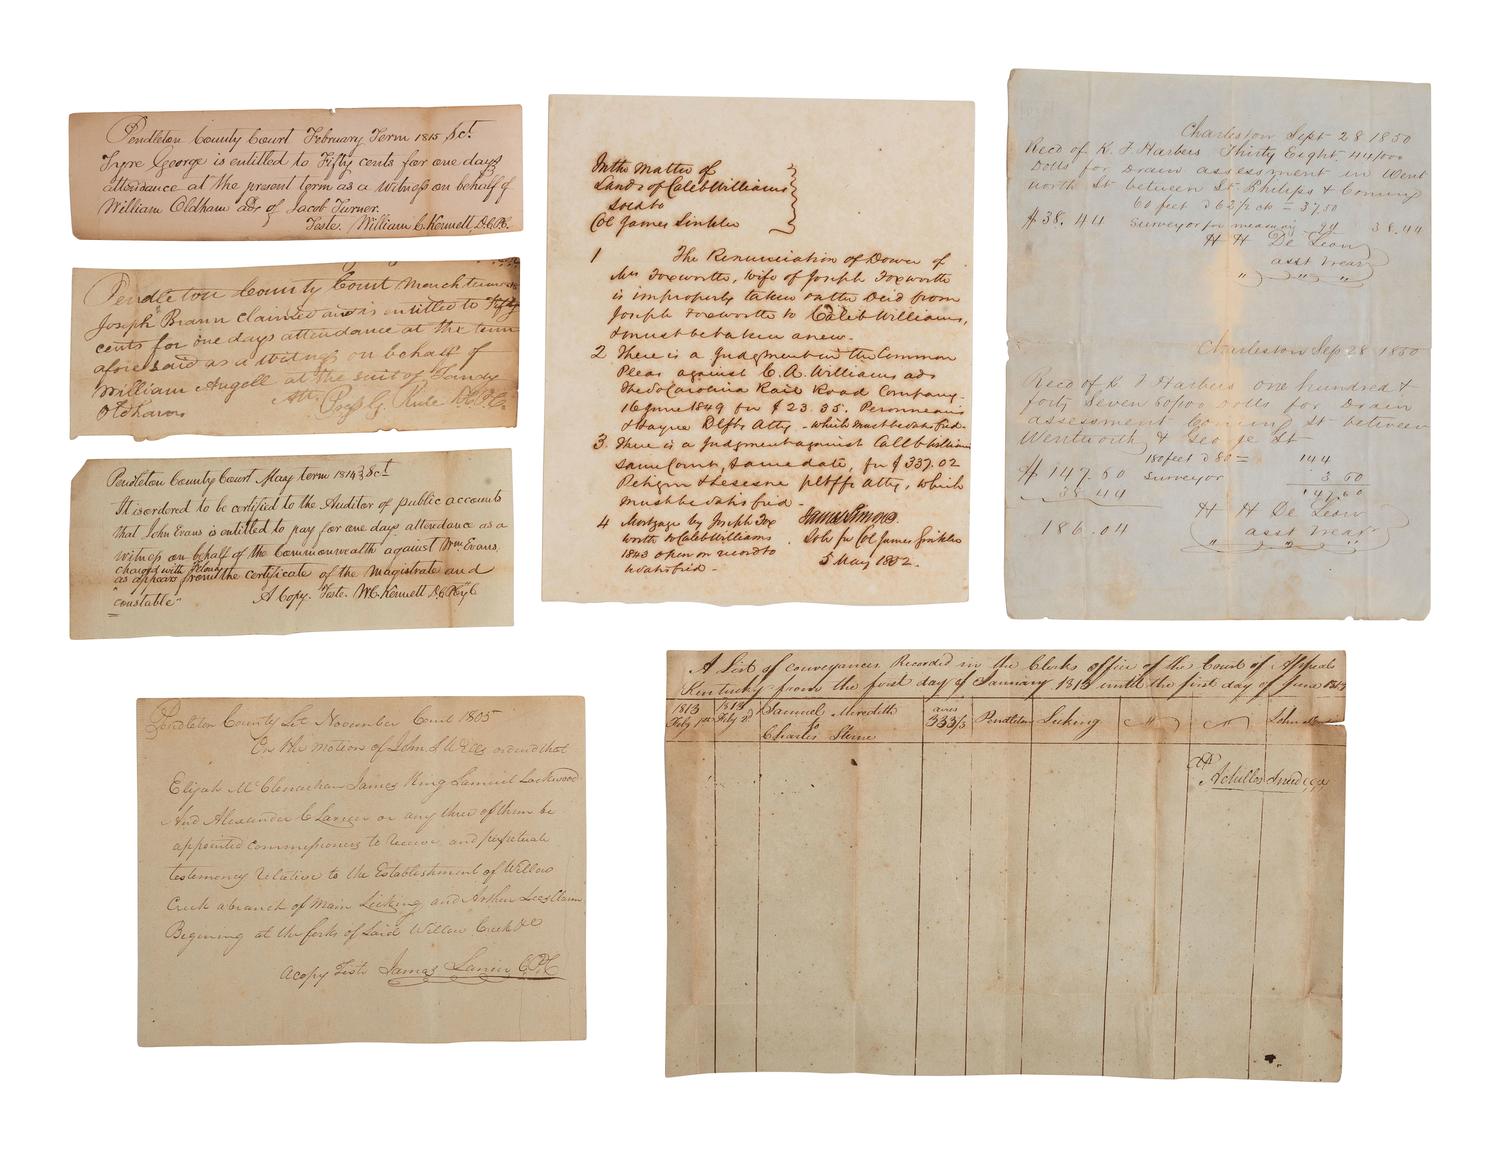 Pendleton County Court February Term 1815, Sct.
Tyre George is entitled to Fifty cents for one days
attendance at the present term as a witness on behalf of
William Oldham ads of Jacob Turner.
Teste. William C. Kennett, D.C.P.C.
Pendleton County Court March term
Joseph Brann claimed and is entitled to Fifty
cents for one days attendance at the term
aforesaid as a witness on behalf of
William Angell at the suit of
Oldham
Pendleton County Court May term 1814, Sct
It is ordered to be certified to the Auditor of public accounts
that John Evans is entitled to pay for one days attendance as a
witness on behalf of the Commonwealth against Wm. Evans.
charged with Felony
as appears from the certificate of the Magistrate and
"constable" A Copy. Teste. W.C. Kennett
In the matter of
Lands of Caleb Williams
sold to
Col James Sinkler
1 The Renunciation of Dower of
Mrs Foxworth, wife of Joseph Foxworth
is improperly taken on the Deed from
Joseph Foxworth to Caleb Williams,
& must be taken anew.
2 There is a Judgment in the Common
Pleas against C. A. Williams ads
The So Carolina Rail Road Company.
16 June 1849 for $23.35. Peronneau
& Hayne Plffs Atty. - which must be satisfied.
3. There is a Judgment against Caleb William
same Court, same date, for $337.02
Petigru & Lesesne pltffs atty, which
must be satisfied.
4 Mortgage by Joseph Fox
worth to Caleb Williams
1843 open on record to
be satisfied.
James Simons.
Solr for Col James Sinkler
5 May 1852.
Charleston Sept 28 1850
Recd of K. J Harbers Thirty Eight 44/000
Dolls for Drain assessment in Went
worth St between St Philips & Coming
60 feet @ 62 1/2 cts = 37.50
$38.44 Surveyor for measuring 94 38.44
H H De Leon
asst Trear
Charleston Sep 28 1850
Recd of K J Harbers one hundred &
forty Seven 60/00 Dolls for Drain
assessment Coming St between
Wentworth & George St
180 feet @ 80 = 144
$147.60 Surveyor 3.60
38.44 147.60
186.04
H H De Leon
asst Trear
Pendleton County Sct November Court 1805
On the motion of John ordered that
Elijah McClenachan James King Samuel Lockwood
And Alexander or any three of them be
appointed commissioners to receive and perpetuate
testemoney relative to the Establishment of Willow
Creek a branch of Main Licking and Arthur
Begening at the forks of Said Willow Creek &c
a copy Teste James C.P.C
A List of conveyances Recorded in the Clerks office of the Court of Appeals
Kentucky from the first day of January 1813 until the first day of June 1813
1813 Feby 1st
1813 Feby 2d
Samuel Meredith
to
Charles Sterne
acres
333 1/3
Pendleton
Licking
John
Att
Achilles Sneed